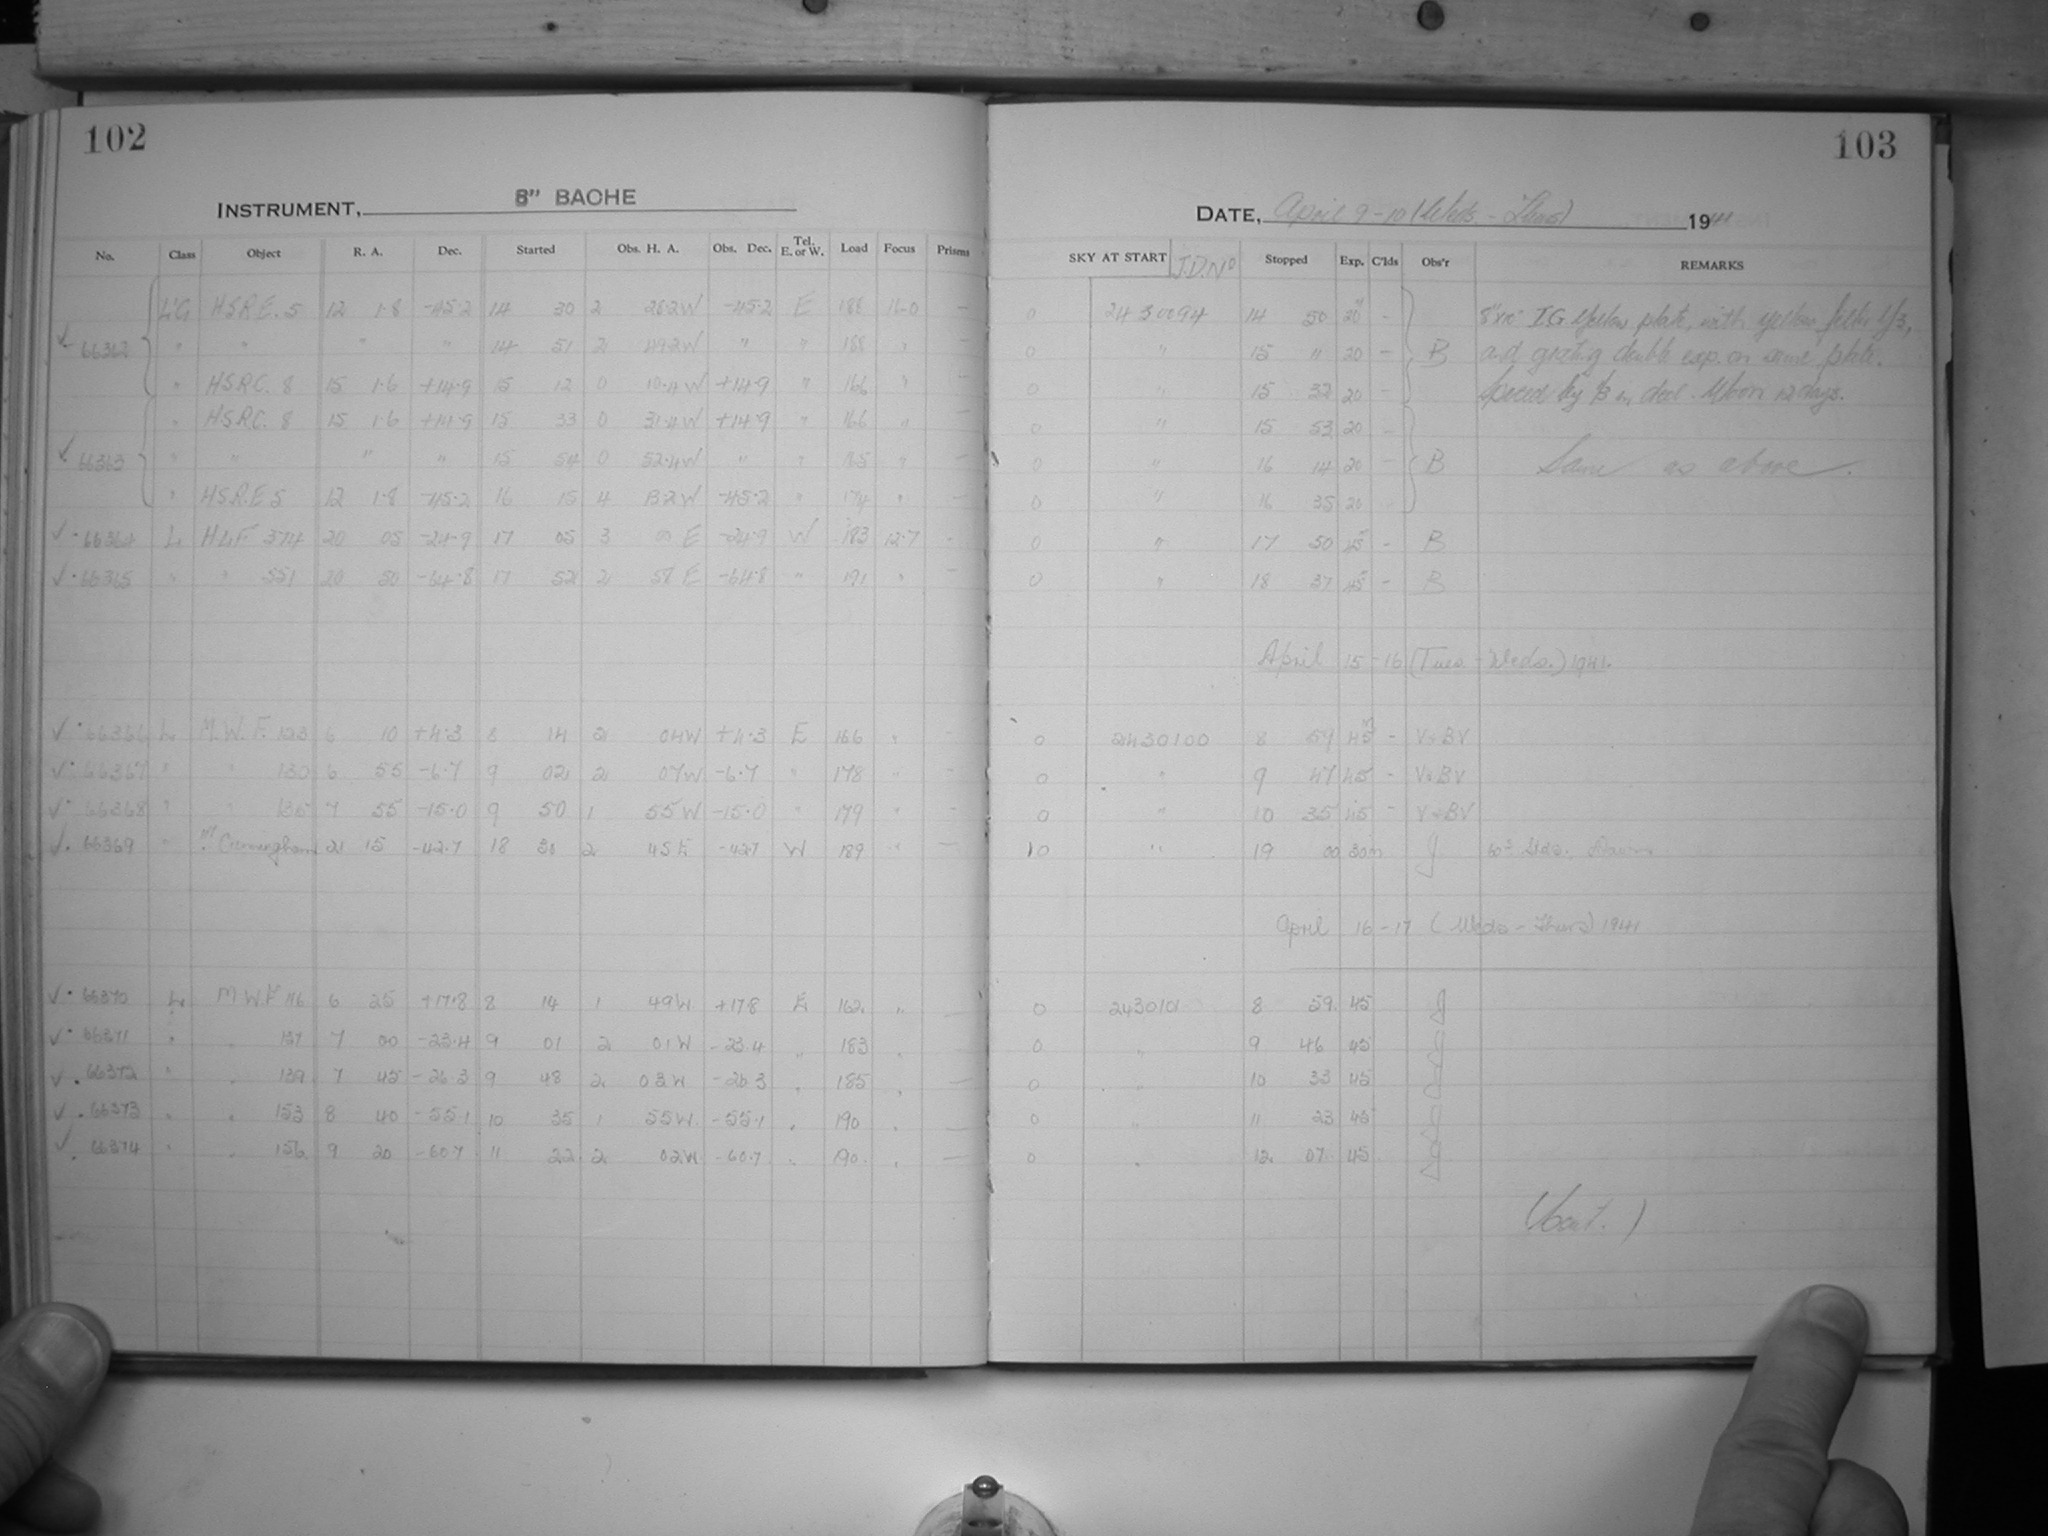 102
INSTRUMENT, 8" BACHE
No. Class Object R. A. Dec. Started Obs. H. A. Obs. Dec. Tel. E. or W. Load Focus Prisms
H.S.R.E. 5 12 1.8 -45.2 14 30 2 28.2W -45.2 E 188 –
66362 " " " " 14 51 2 49.2W " " 188 " –
" HSRC. 8 15 1.6 +14.9 15 12 0 10.4W +14.9 " 166 " –
" HSRC. 8 15 1.6 +14.9 15 33 0 31.4W +14.9 " 166 "
✓ 66363 " " " " 15 54 0 52.4W " " 165 " –
" HSR.E 5 12 1.8 -45.2 16 15 4 13.2W -45.2 " 174 " –
✓ 66364 L 20 05 -24.9 17 05 3 00 E -24.9 W 183 12.7 –
✓ 66365 " " 551 20 50 -64.8 17 52 2 58 E -64.8 " 191 " –
✓ 66366 L M.W.F. 123 6 10 +4.3 8 14 2 04W +4.3 E 166 " –
✓ 66367 " " 130 6 55 -6.7 9 02 2 07W -6.7 " 178 " –
✓ 66368 " " 135 7 55 -15.0 9 50 1 55W -15.0 " 179 " –
✓ 66369 " Cunningham 21 15 -42.7 18 30 2 45E -42.7 W 189 " –
✓ 66370 L M.W.F 116 6 25 +17.8 8 14 1 49W +17.8 E 162 " –
✓ 66371 " " 137 7 00 -23.4 9 01 2 01W -23.4 " 183 " –
✓ 66372 " " 139 7 45 -26.3 9 48 2 03W -26.3 " 185 " –
✓ 66373 " " 153 8 40 -55.1 10 35 1 55W -55.1 " 190 " –
✓ 66374 " " 156 9 20 -60.7 11 22 2 02W -60.7 " 190 " –
103
DATE, April 9-10 (Weds - Thurs) 1941
SKY AT START J.D. No Stopped Exp. C'lds Obs'r REMARKS
0 2430094 14 50 20 – 8"x10" I.G. Yellow plate, with yellow filter
0 " 15 " 20 – B and grating double exp. on same plate.
0 " 15 32 20 – Moon 12 days.
0 " 15 53 20 –
0 " 16 14 20 – B Same as above.
0 " 16 35 20
0 " 17 50 45 – B
0 " 18 37 45 – B
April 15-16 (Tues - Weds.) 1941.
0 2430100 8 59 45 – V+BV
0 " 9 47 45 – V+BV
0 " 10 35 45 – V+BV
10 " 19 00 30m J Dawn
April 16-17 (Weds - Thurs) 1941
0 2430101 8 59 45
0 " 9 46 45
0 " 10 33 45
0 " 11 23 45
0 " 12 07 45
(Cont.)